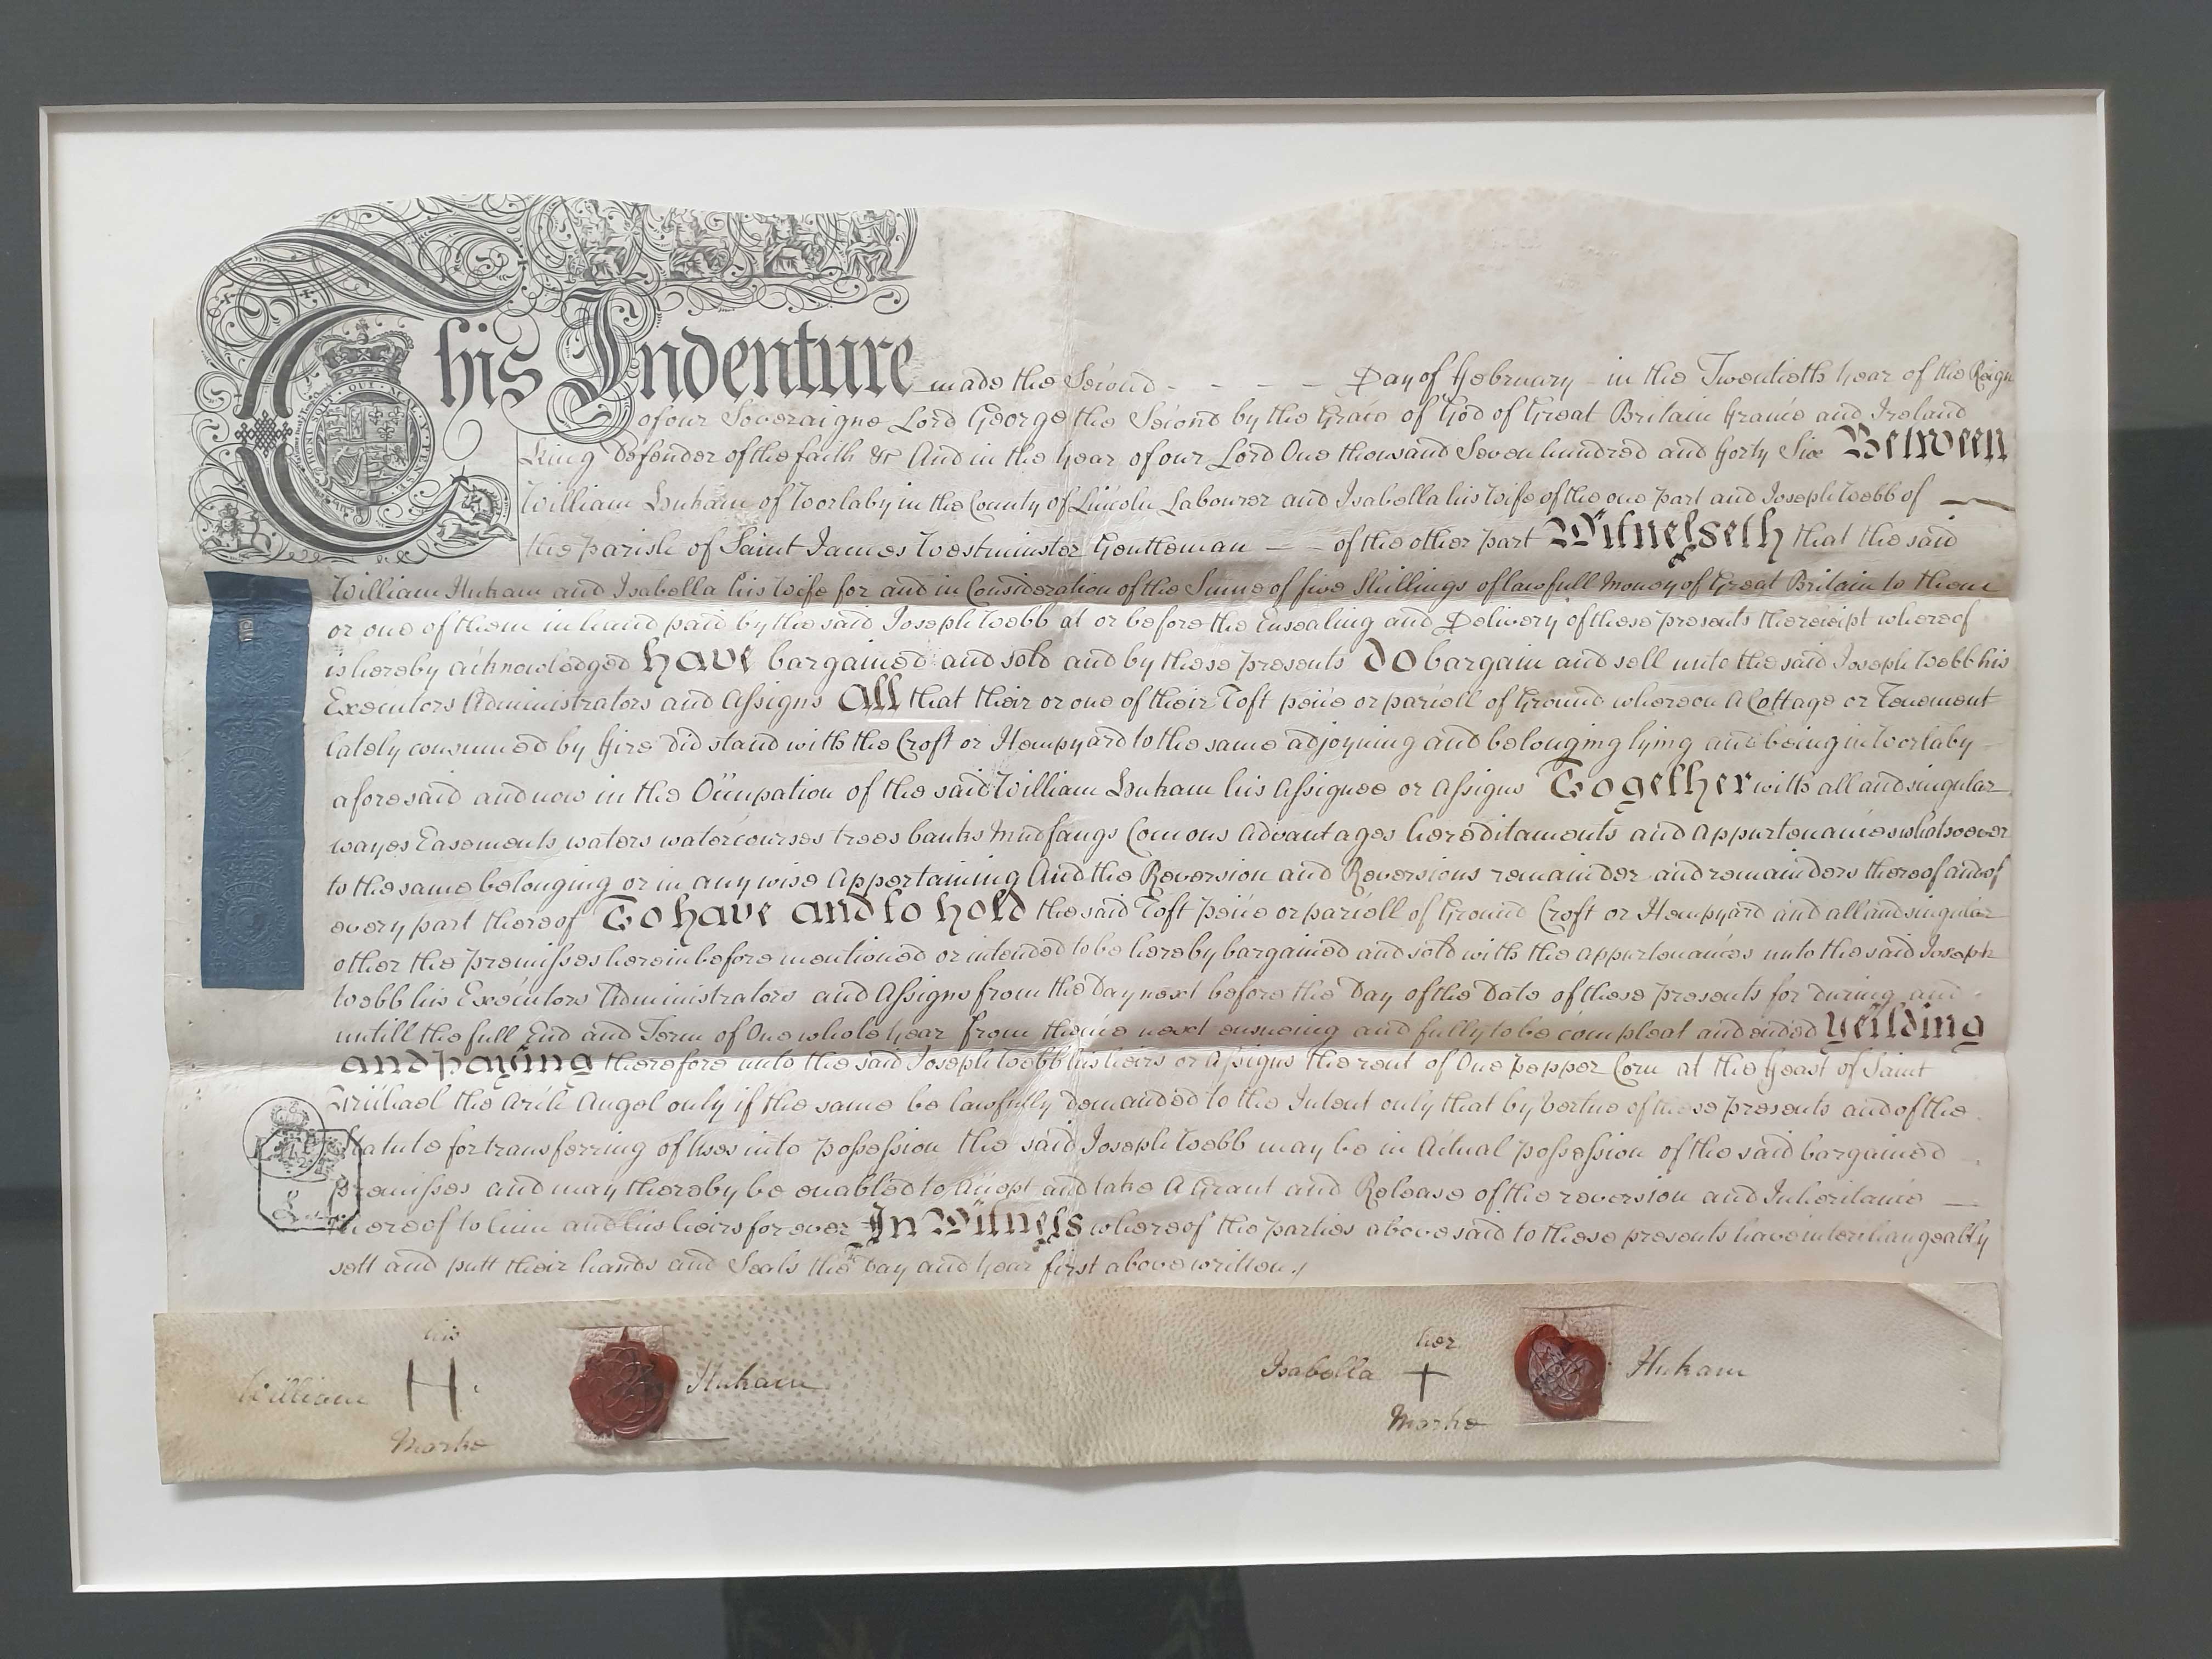 This Indenture made the Second - - - - - Day of February in the Twentieth year of the Reign
of our Soveraigne Lord George the Second by the Grace of God of Great Britain France and Ireland
King Defender of the faith &c And in the year of our Lord One thousand Seven hundred and forty Six Between
William Hukam of Worlaby in the County of Lincoln Labourer and Isabella his Wife of the one part and Joseph Webb of
the parish of Saint James Westminster Gentleman — — of the other part Witnesseth that the said
William Hukam and Isabella his Wife for and in Consideration of the Sume of five Shillings of lawfull Money of Great Britain to them
or one of them in hand paid by the said Joseph Webb at or before the Ensealing and Delivery of these presents the receipt whereof
is hereby acknowledged have bargained and sold and by these presents Do bargain and sell unto the said Joseph Webb his
Executors Administrators and Assigns All that their or one of their Toft peice or parcell of Ground whereon A Cottage or Tenement
lately consumed by fire did stand with the Croft or Hempyard to the same adjoyning and belonging lying and being in Worlaby
aforesaid and now in the Occupation of the said William Hukam his Assignee or Assigns Together with all and singular
wayes Easements waters watercourses trees banks Mudfangs Comons Advantages hereditaments and Appurtenances whatsoever
to the same belonging or in any wise Appertaining And the Reversion and Reversions remainder and remainders thereof and of
every part thereof To have and to hold the said Toft peice or parcell of Ground Croft or Hempyard and all and singular
other the premisses hereinbefore mentioned or intended to be hereby bargained and sold with the Appurtenances unto the said Joseph
Webb his Executors Administrators and Assigns from the Day next before the Day of the Date of these presents for during and
untill the full End and Term of One whole year from thence next ensueing and fully to be compleat and ended Yeilding
and paying therefore unto the said Joseph Webb his heirs or Assigns the rent of One pepper Corn at the Feast of Saint
Michael the Arch Angel only if the same be lawfully Demanded to the Intent only that by Vertue of these presents and of the
Statute for transferring of Uses into possession the said Joseph Webb may be in Actual possession of the said bargained
premisses and may thereby be enabled to Accept and take A Grant and Release of the reversion and Inheritance
thereof to him and his heirs for ever In Witness whereof the parties abovesaid to these presents have interchangeably
sett and putt their hands and Seals the Day and year first above written
HONI SOIT QUI MAL Y PENSE
William his H Marke Hukam
Isabella her + Marke Hukam